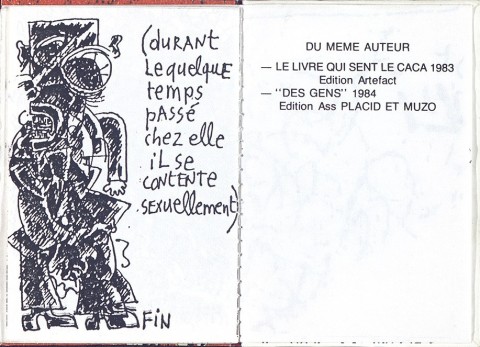 (DURANT
LEQUELQUE
TEMPS
PASSÉ
CHEZ ELLE
IL SE
CONTENTE
SEXUELLEMENT)
FIN
DU MEME AUTEUR
— LE LIVRE QUI SENT LE CACA 1983
Edition Artefact
— "DES GENS" 1984
Edition Ass PLACID ET MUZO